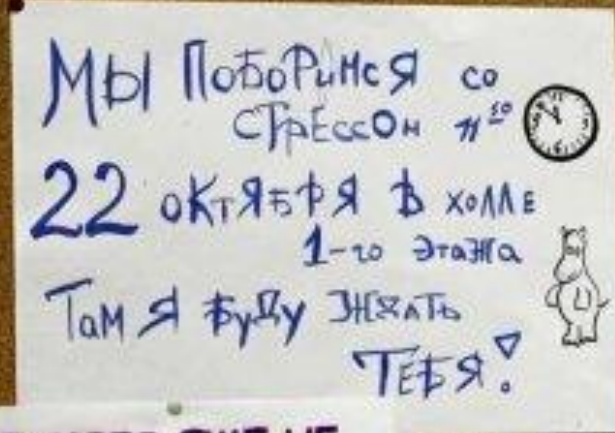 Мы поборимся со
стрессом 11⁵⁰
22 октября в холле
1-го этажа
Там я буду ждать
тебя!